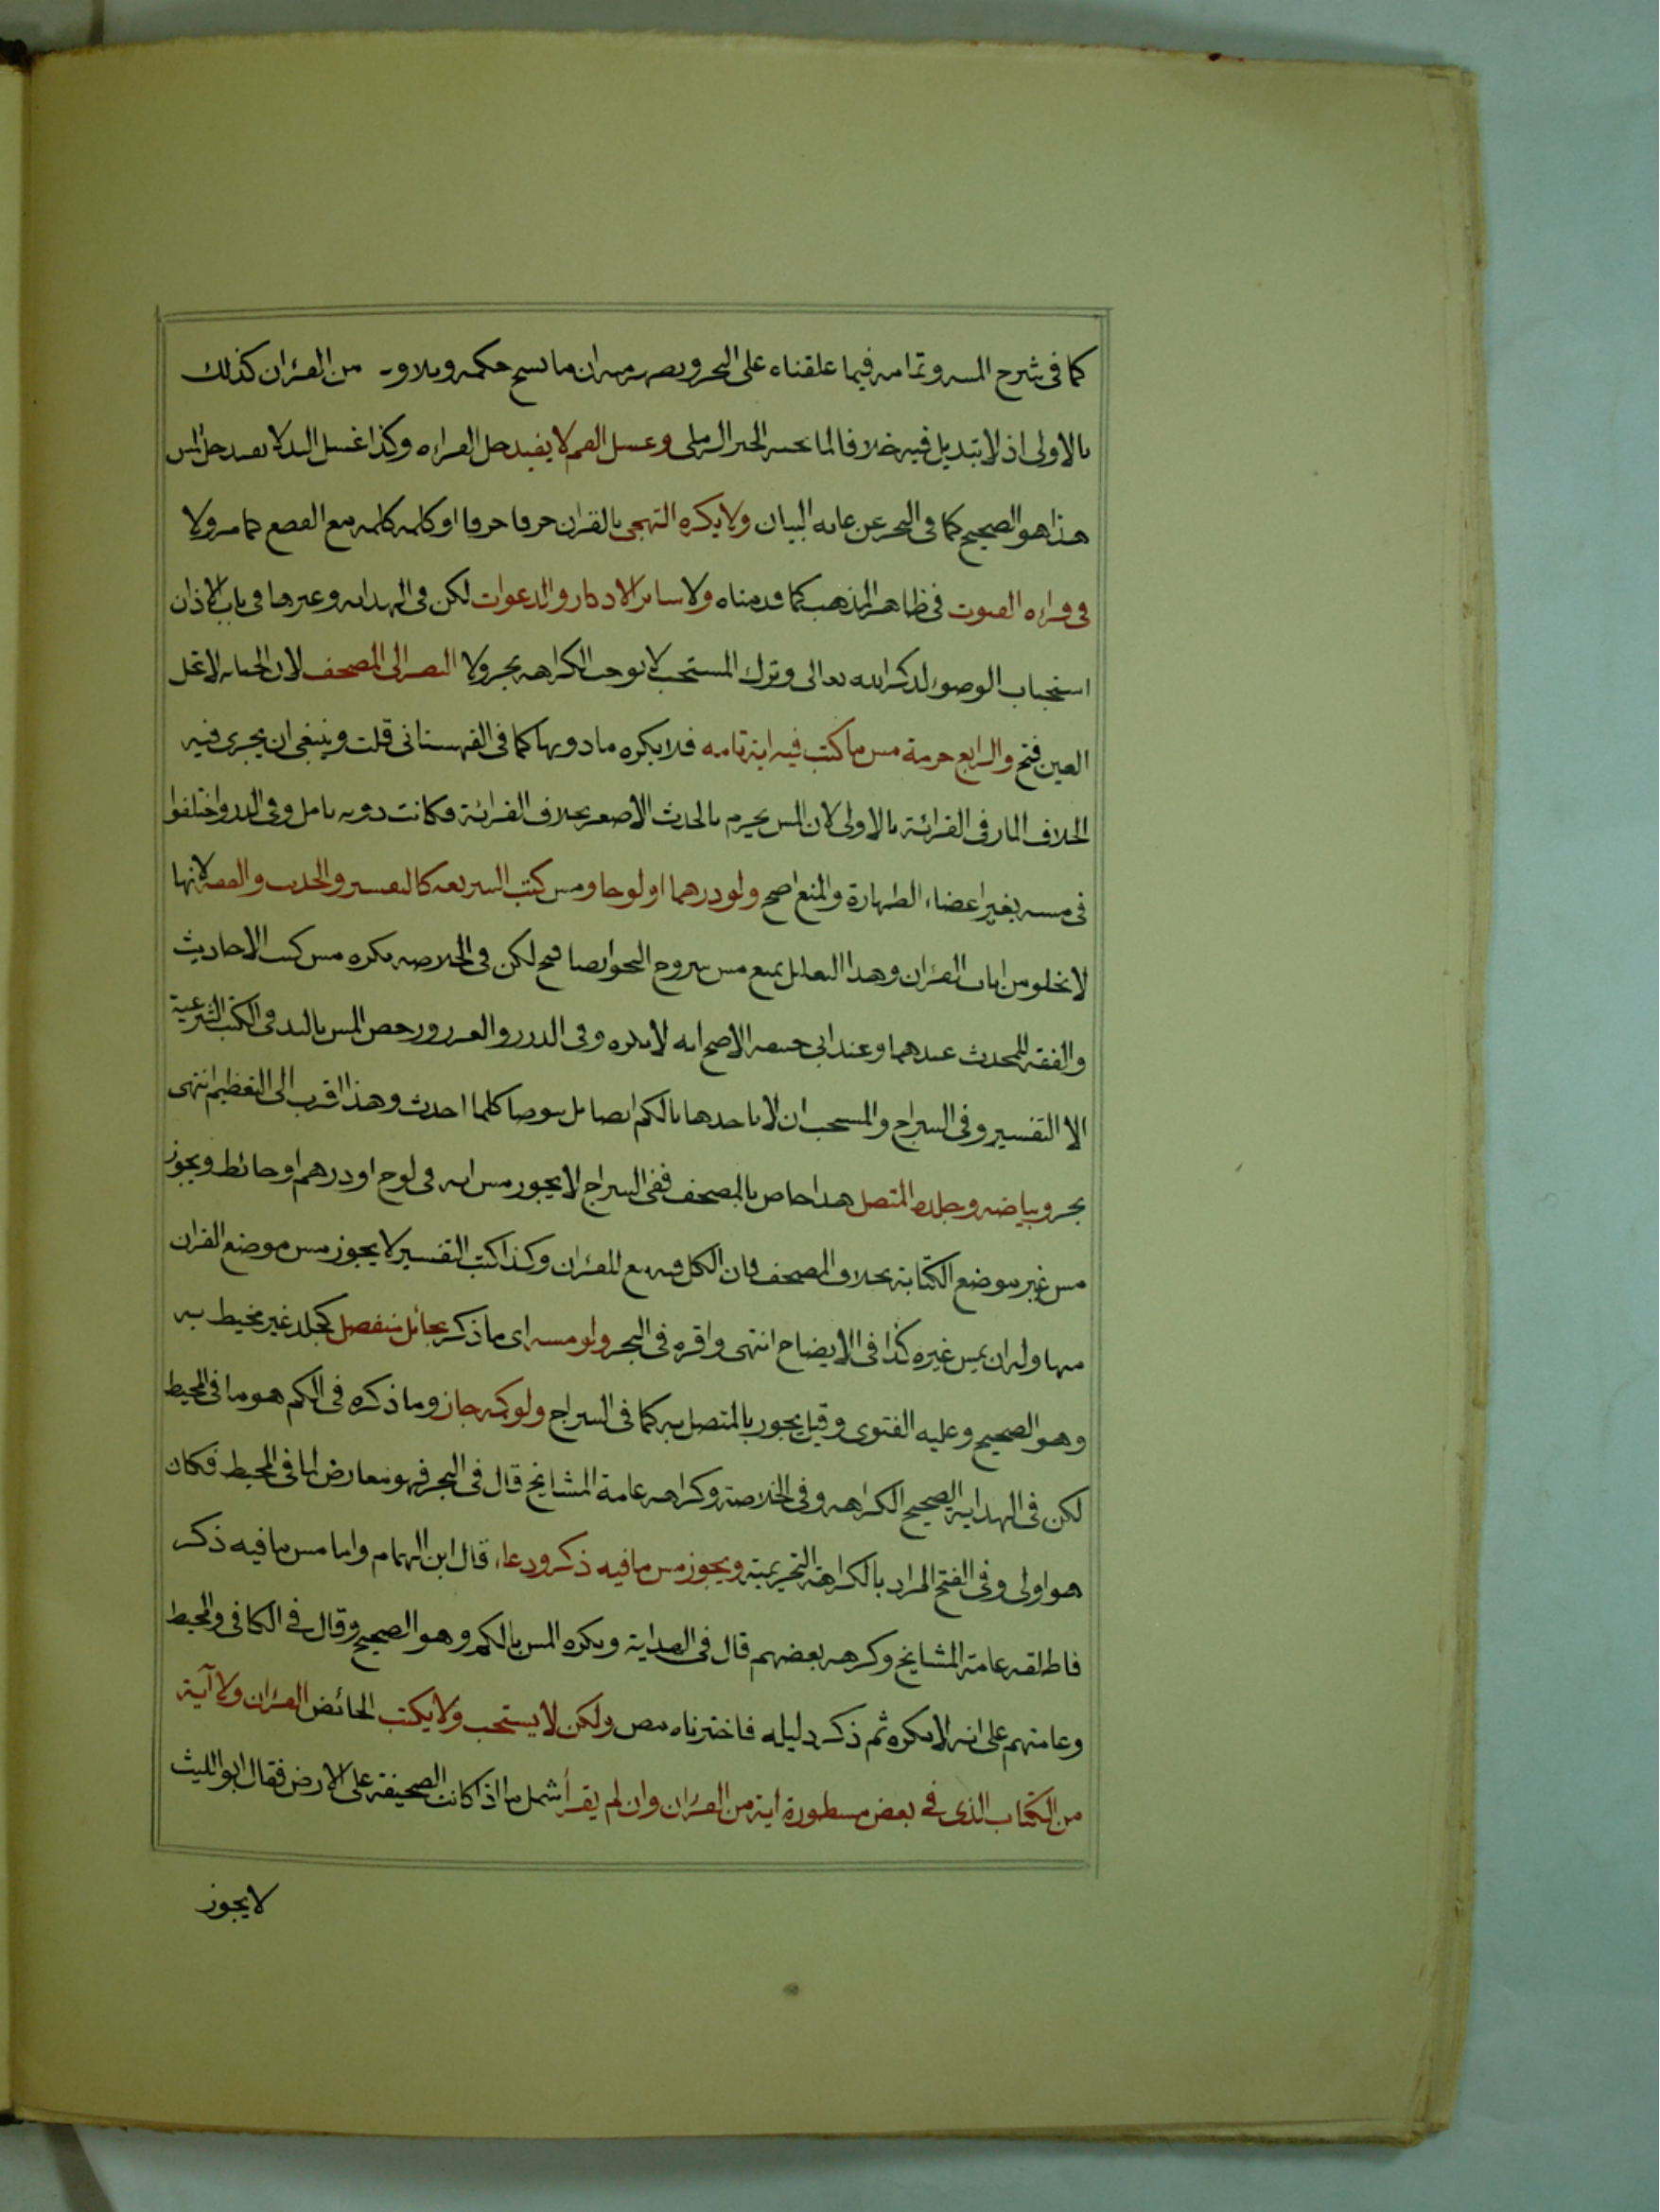 كما فى شرح المنيه وتمامه فيما علقناه على البحر ان ما نسخ حكمه وتلاوته من القرآن كذلك
بالاولى اذ لا تبديل فيه خلافا لما بحثه الخير الرملى وغسل الفم لا يفيد حل القراءه وكذا غسل اليد لا يفيد حل المس
هذا هو الصحيح كما فى البحر عن غاية البيان ولا يكره التهجى بالقران حرفا حرفا او كلمه كلمه مع القطع كما مر ولا
فى قراءه القنوت فى ظاهر المذهب كما قدمناه ولا سائر الاذكار والدعوات لكن فى الهدايه وغيرها فى باب الاذان
استحباب الوضوء لذكر الله تعالى وترك المستحب لا يوجب الكراهه بحر ولا النظر الى المصحف لان الجنابه لا تحل
العين فتح والرابع حرمة مس ما كتب فيه اية تامه فلا يكره ما دونها كما فى القهستانى قلت وينبغى ان يجرى فيه
الخلاف المار فى القرائة بالاولى لان المس يحرم بالحدث الاصغر بخلاف القرائة فكانت دونه تامل وفى الدر واختلفوا
فى مسه بغير اعضاء الطهارة والمنع اصح ولو درهما او لوحا ومس كتب الشريعه كالتفسير والحديث والفقه لانها
لا تخلو من ايات القرآن وهذا التعليل يمنع مس شروح النحو ايضا فتح لكن فى الخلاصه يكره مس كتب الاحاديث
والفقه للمحدث عندهما وعند ابى حنيفه الاصح انه لا يكره وفى الدرر والغرر ورخص المس باليد فى الكتب الشرعية
الا التفسير وفى السراج والمستحب ان لا ياخذها بالكم ايضا بل يتوضا كلما احدث وهذا اقرب الى التعظيم انتهى
بحر وبياضه وجلده المتصل هذا خاص بالمصحف ففى السراج لا يجوز مس ايه فى لوح او درهم او حائط ويجوز
مس غير موضع الكتابة بخلاف المصحف فان الكل فيه تبع للقرآن وكذا كتب التفسير لا يجوز مس موضع القران
منها وله ان يمس غيره كذا فى الايضاح انتهى واقره فى البحر ولو مسه اى ما ذكر بحائل منفصل كجلد غير مخيط به
وهو الصحيح وعليه الفتوى وقيل يجوز بالمتصل به كما فى السراج ولو بكمه جاز وما ذكره فى الكم هو ما فى المحيط
لكن فى الهداية الصحيح الكراهه وفى الخلاصة وكراهه عامة المشايخ قال فى البحر فهو معارض لما فى المحيط فكان
هو اولى وفى الفتح المراد بالكراهة التحريمية ويجوز مس ما فيه ذكر ودعاء قال ابن الهمام واما مس ما فيه ذكر
فاطلقه عامة المشايخ وكرهه بعضهم قال فى الهداية ويكره المس بالكم وهو الصحيح وقال فى الكافى والمحيط
وعامتهم على انه لا يكره ثم ذكر دليله فاخترناه ولكن لا يستحب ولا يكتب الحائض القرآن ولا آية
من الكتاب الذى فى بعض مسطورة اية من القرآن وان لم يقرأ شمل ما اذا كانت الصحيفة على الارض فقال ابو الليث
لا يجوز